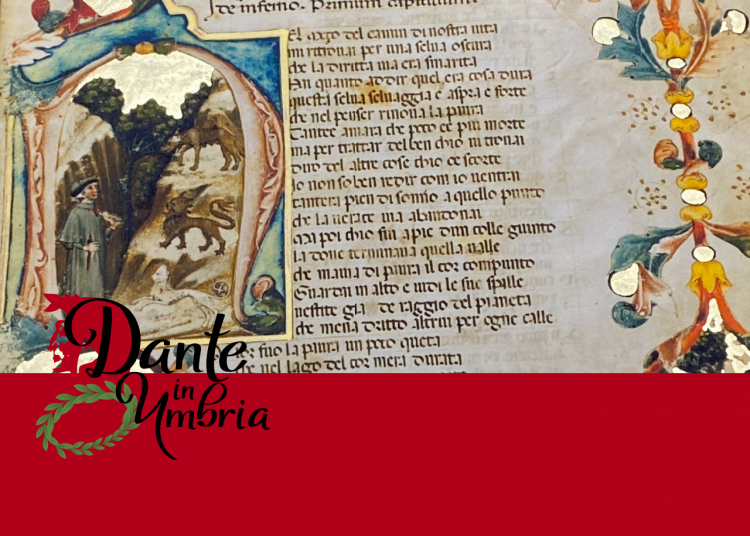 de inferno. Primum capitulum
El mezo del camin di nostra uita
mi ritrouai per una selua oscura
che la diritta uia era smarita
quanto a dir quel era cosa dura
questa selua seluaggia e aspra e forte
che nel penser rinoua la paura
Tantee amara che poco ee piu morte
ma per trattar del ben chio ui trouai
diro del altre cose chio ce scorte
Io non so ben redir com io uentrai
tantera pien di sonno a quello punto
che la uerace uia abandonai
Ma poi chio fui a pie dun colle giunto
la doue terminaua quella ualle
che mauia di paura il cor compunto
Guardai in alto e uidi le sue spalle
uestite gia de raggio del pianeta
che mena dritto altrui per ogne calle
fuo la paura un poco queta
nel lago del cor mera durata
Dante
in
Umbria